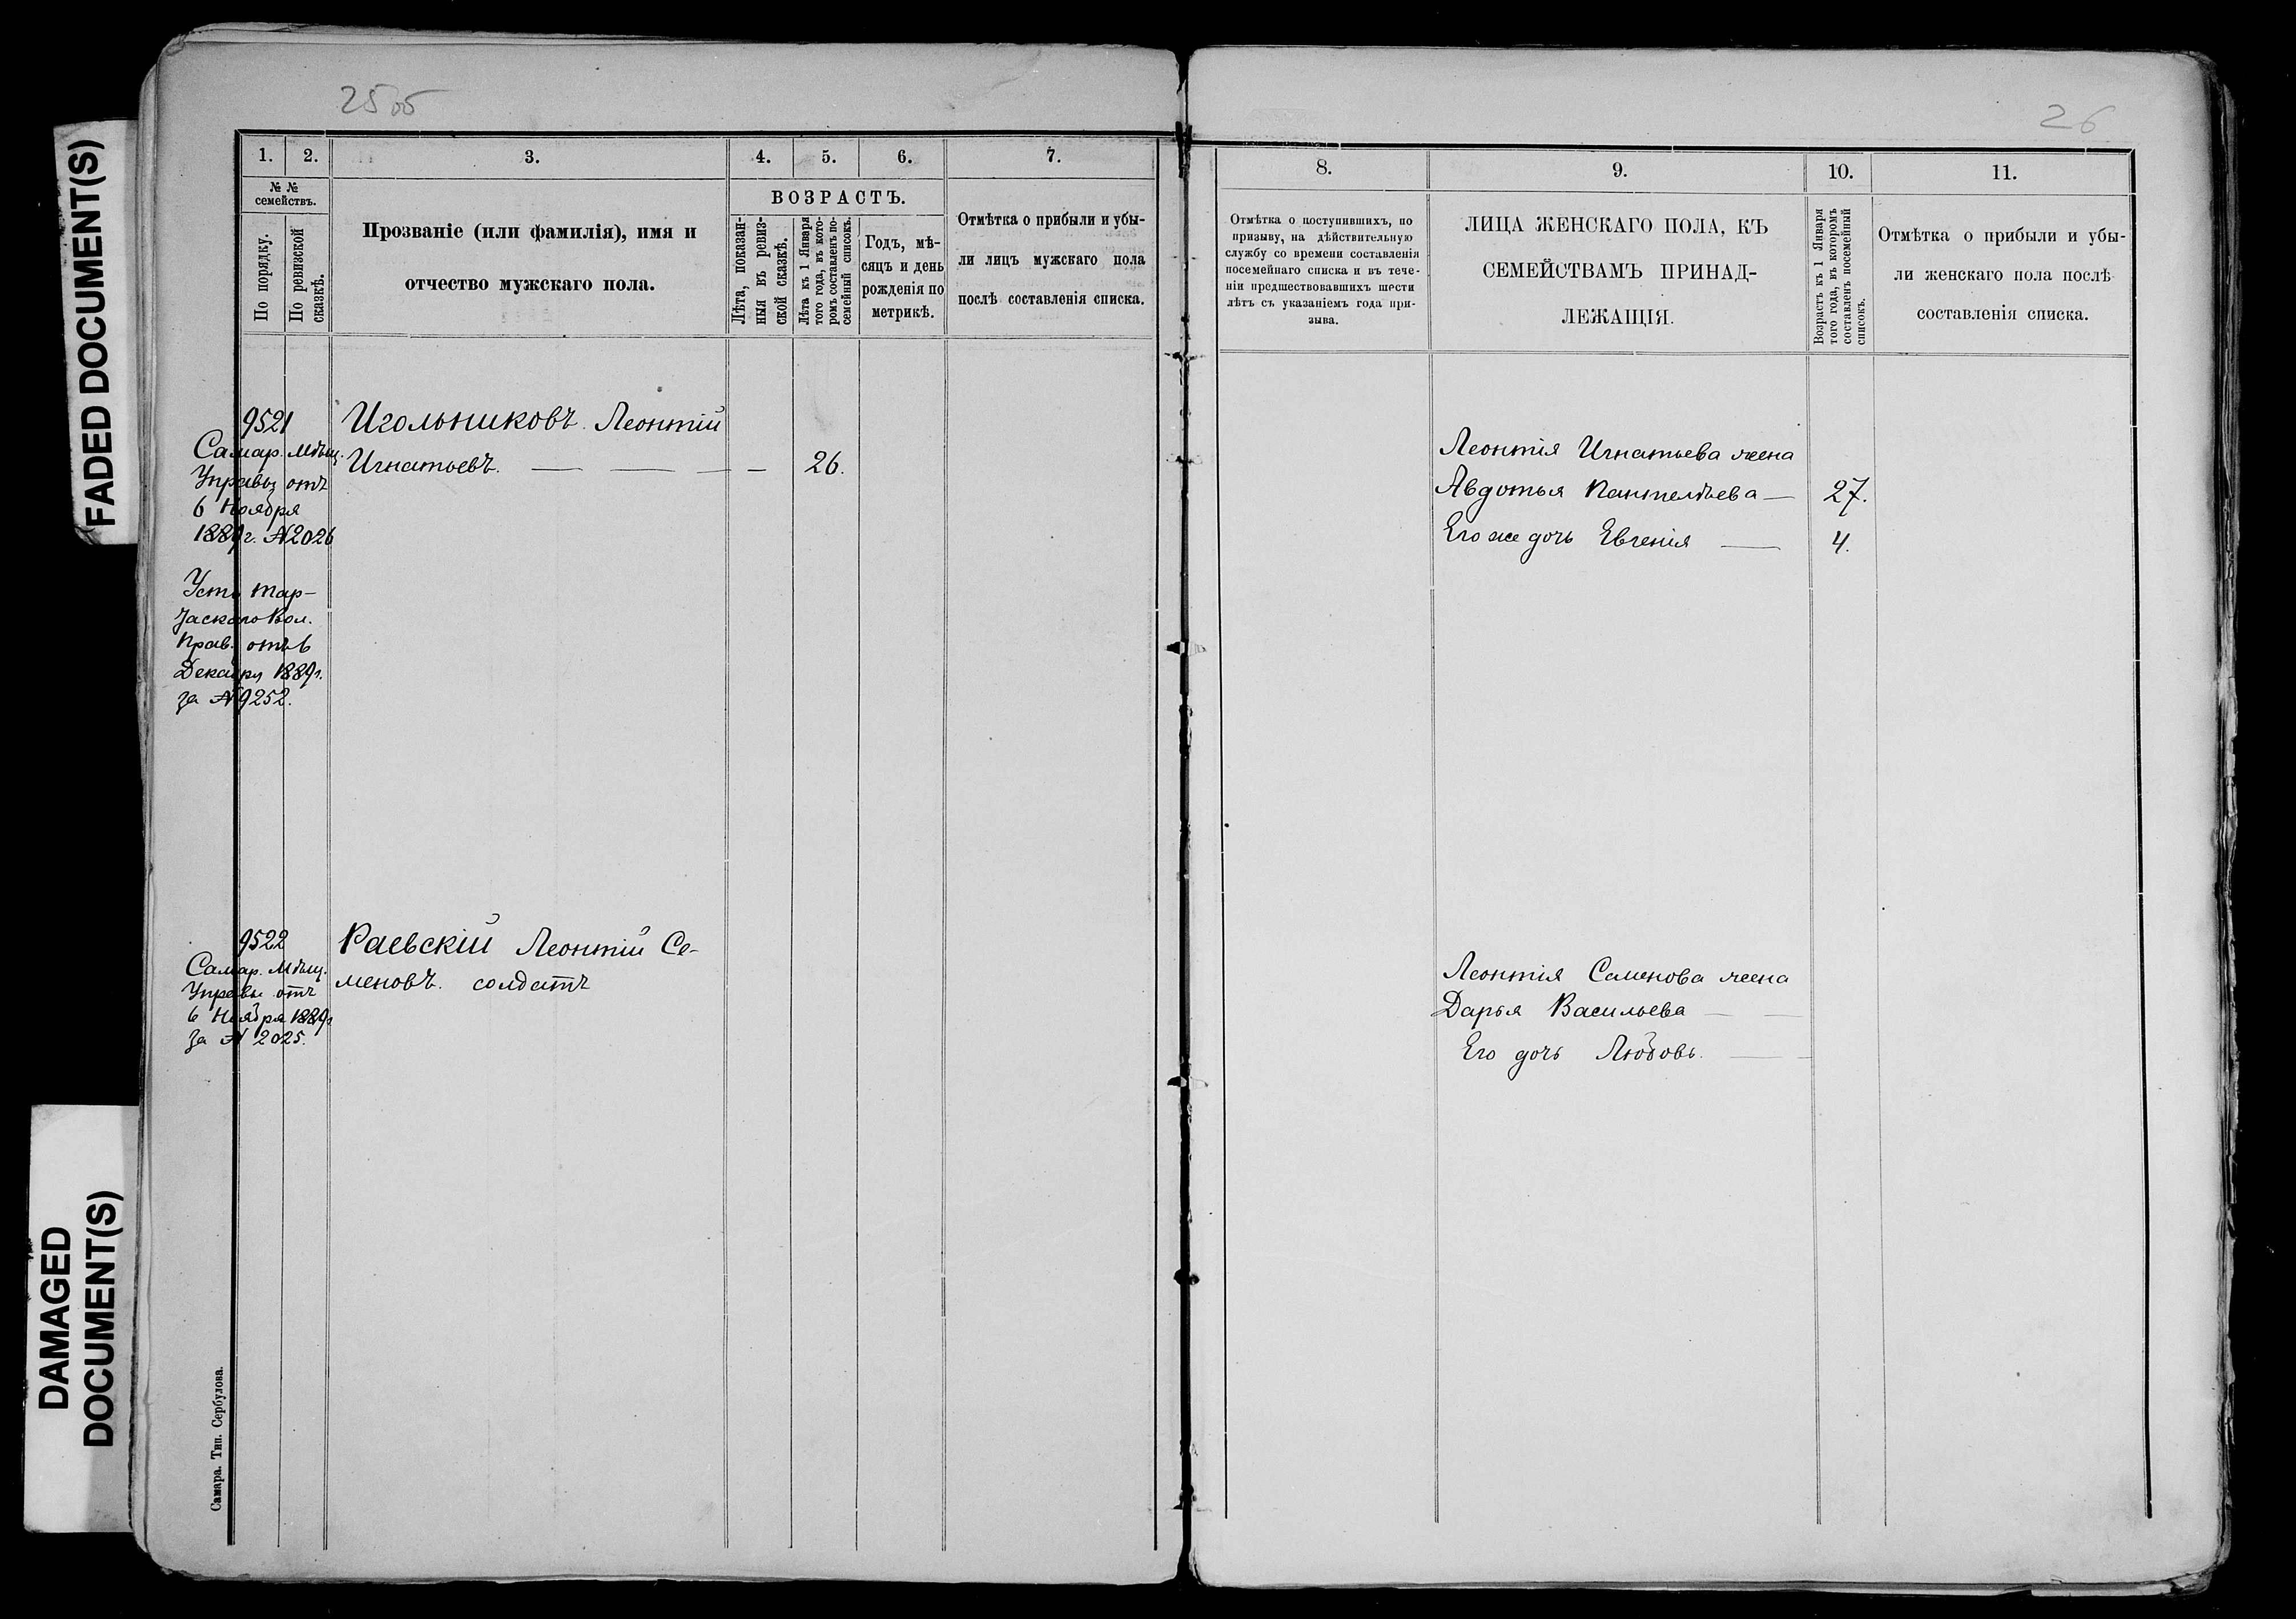 FADED DOCUMENT(S)
DAMAGED
DOCUMENT(S)
25об
1.
2.
3.
4.
5.
6.
7.
№ №
семействъ.
По порядку.
По ревизской
сказкѣ.
Прозваніе (или фамилія), имя и
отчество мужскаго пола.
ВОЗРАСТЪ.
Лѣта, показан-
ныя въ ревиз-
ской сказкѣ.
Лѣта къ 1 Января
того года, въ кото-
ромъ составленъ по-
семейный списокъ.
Годъ, мѣ-
сяцъ и день
рожденія по
метрикѣ.
Отмѣтка о прибыли и убы-
ли лицъ мужскаго пола
послѣ составленія списка.
9521
Самар. Мѣщ.
Управы отъ
6 Ноября
1889г. №2026
Усть Тар-
Вол.
Прав. отъ 6
Декабря 1889г.
за №9252.
Игольниковъ Леонтій
Игнатьевъ. — — — — 26.
9522
Самар. Мѣщ.
Управы отъ
6 Ноября 1889г
за № 2025.
Раевскій Леонтій Се-
меновъ. солдатъ
Самара. Тип. Сербулова.
26
8.
9.
10.
11.
Отмѣтка о поступившихъ, по
призыву, на дѣйствительную
службу со времени составленія
посемейнаго списка и въ тече-
ніи предшествовавшихъ шести
лѣтъ съ указаніемъ года при-
зыва.
ЛИЦА ЖЕНСКАГО ПОЛА, КЪ
СЕМЕЙСТВАМЪ ПРИНАД-
ЛЕЖАЩІЯ.
Возрастъ къ 1 Января
того года, въ которомъ
составленъ посемейный
списокъ.
Отмѣтка о прибыли и убы-
ли женскаго пола послѣ
составленія списка.
Леонтія Игнатьева жена
Авдотья Пантелѣева — 27.
Его же дочь Евгенія — 4.
Леонтія Семенова жена
Дарья Васильева — —
Его дочь Любовь. — —